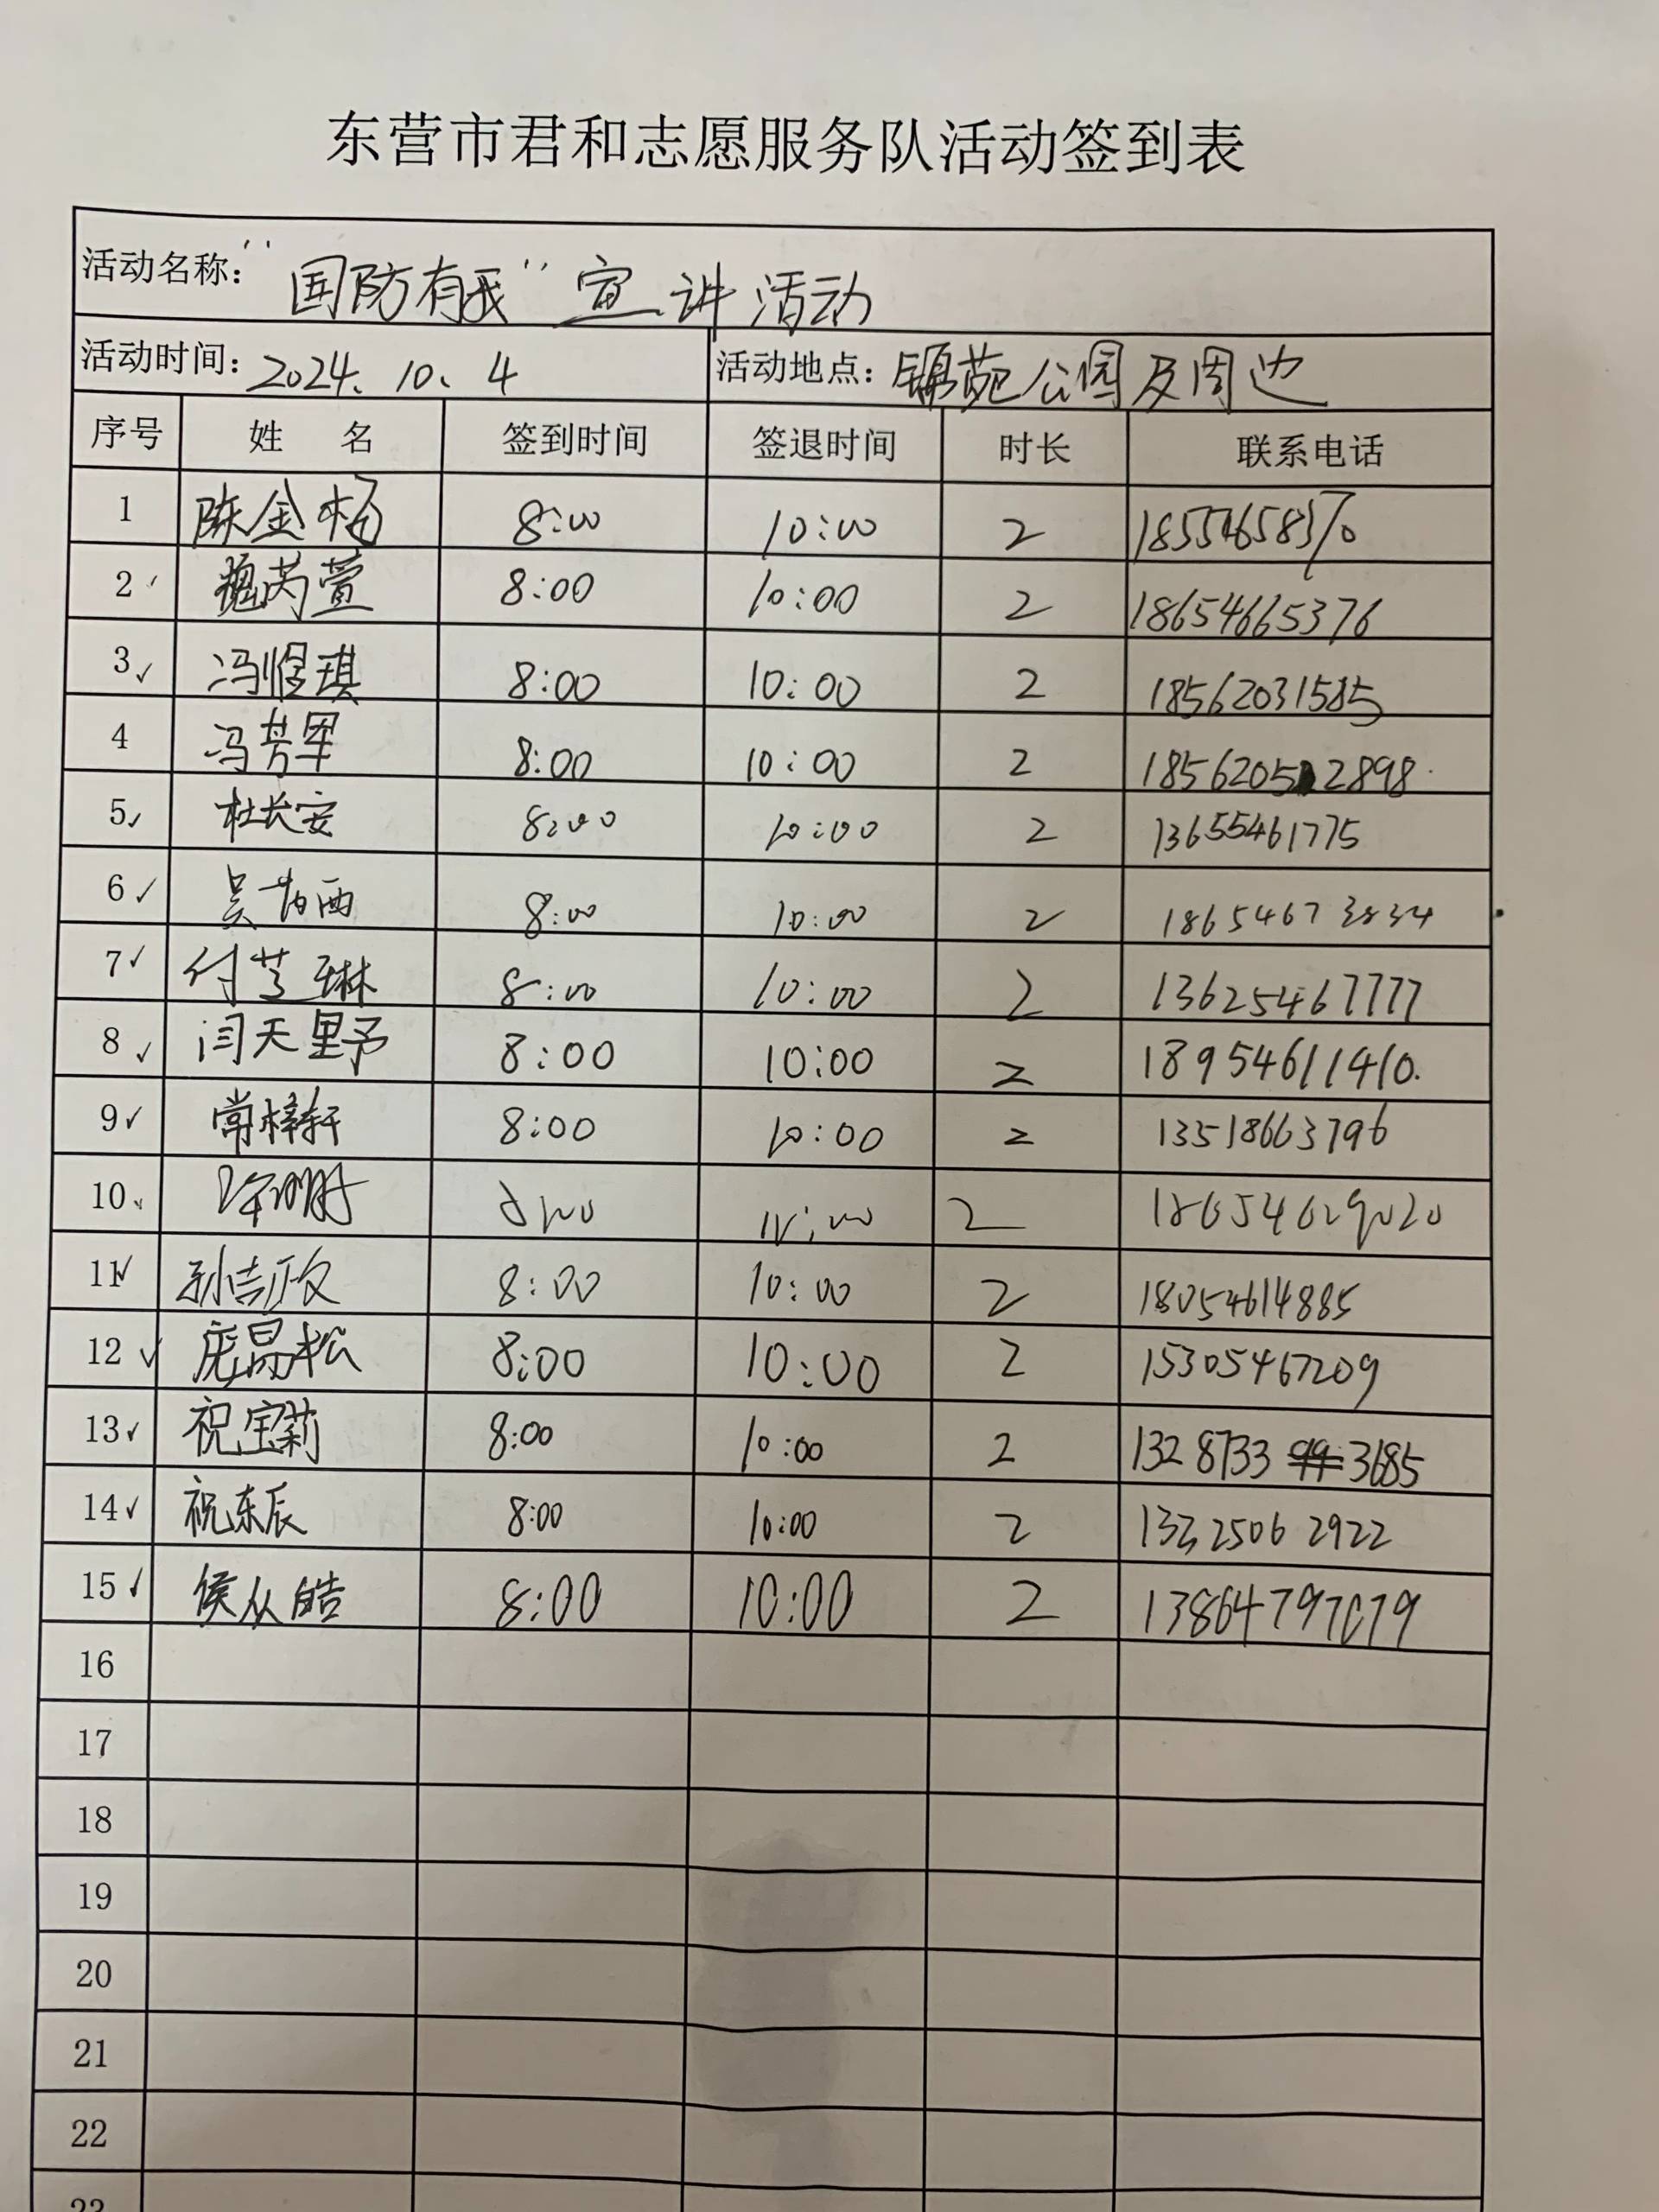 东营市君和志愿服务队活动签到表
活动名称：“国防有我”宣讲活动
活动时间：2024.10.4 活动地点：锦苑公园及周边
序号 姓 名 签到时间 签退时间 时长 联系电话
1 陈金杨 8:00 10:00 2
2 魏芮萱 8:00 10:00 2 18654665376
3 冯惺琪 8:00 10:00 2 18562031585
4 冯芳军 8:00 10:00 2 18562052898
5 杜长安 8:00 10:00 2 13655461775
6 吴 西 8:00 10:00 2 18654673834
7 付芝琳 8:00 10:00 2 13625467777
8 闫天野 8:00 10:00 2 18954611410.
9 常梓轩 8:00 10:00 2 13518663796
10 8:00 10:00 2
11 孙吉欣 8:00 10:00 2 18054614885
12 庞昌松 8:00 10:00 2 15305467209
13 祝宝莉 8:00 10:00 2 132 8733 3685
14 祝东辰 8:00 10:00 2 133 2506 2922
15 侯从皓 8:00 10:00 2 13864797079
16
17
18
19
20
21
22
23